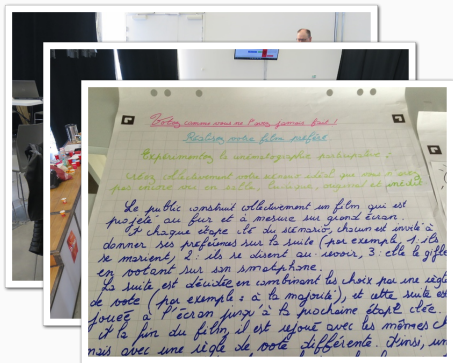 Votez comme vous ne l'avez jamais fait !
Réalisez votre film préféré
Expérimentez la cinématographie participative :
créez collectivement votre séance idéale que vous n'avez
pas encore vu en salle, ludique, original et inédit
Le public construit collectivement un film qui est
projeté au fur et à mesure sur grand écran.
A chaque étape clé du scénario, chacun est invité à
donner ses préférences sur la suite (par exemple 1: ils
se marient, 2: ils se disent au-revoir, 3: elle le gifle)
en votant sur son smartphone.
La suite est décidée en combinant les choix par une règle
de vote (par exemple : à la majorité), et cette suite est
jouée à l'écran jusqu'à la prochaine étape clée.
A la fin du film, il est rejoué avec les mêmes ch
mais avec une règle de vote différente. Ainsi, un